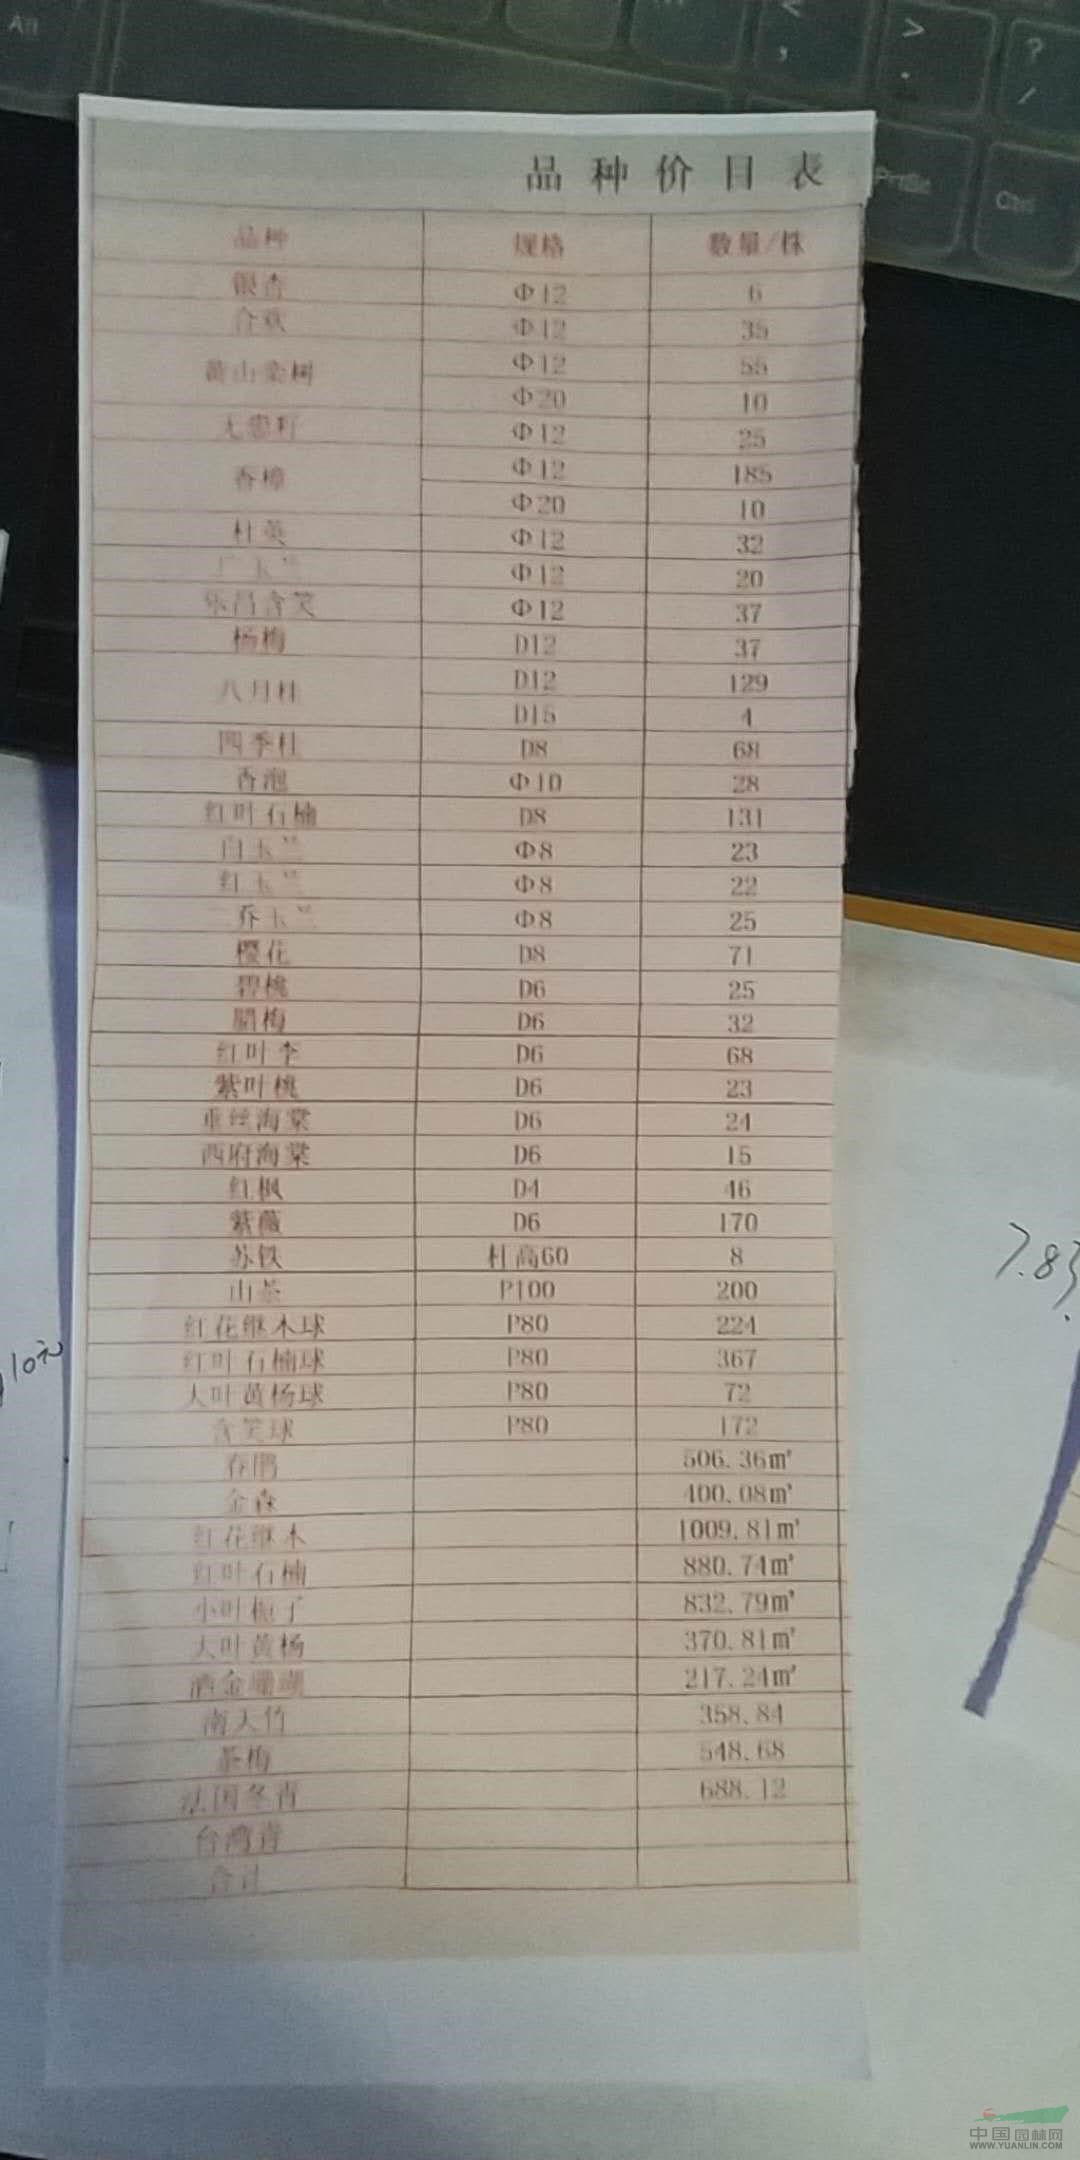 Alt
<
,
>
.
?
/
PrtSc
Ctrl
品种价目表
品种 规格 数量/株
银杏 Φ12 6
合欢 Φ12 35
黄山栾树 Φ12 55
Φ20 10
无患籽 Φ12 25
香樟 Φ12 185
Φ20 10
杜英 Φ12 32
广玉兰 Φ12 20
乐昌含笑 Φ12 37
杨梅 D12 37
八月桂 D12 129
D15 4
四季桂 D8 68
香泡 Φ10 28
红叶石楠 D8 131
白玉兰 Φ8 23
红玉兰 Φ8 22
二乔玉兰 Φ8 25
樱花 D8 71
碧桃 D6 25
腊梅 D6 32
红叶李 D6 68
紫叶桃 D6 23
垂丝海棠 D6 24
西府海棠 D6 15
红枫 D4 46
紫薇 D6 170
苏铁 杜高60 8
山茶 P100 200
红花继木球 P80 224
红叶石楠球 P80 367
大叶黄杨球 P80 72
含笑球 P80 172
春鹃 506.36㎡
金森 400.08㎡
红花继木 1009.81㎡
红叶石楠 880.74㎡
小叶栀子 832.79㎡
大叶黄杨 370.81㎡
洒金珊瑚 217.24㎡
南天竹 358.84
茶梅 548.68
法国冬青 688.12
台湾青
合计
10元
7.83
中国园林网
WWW.YUANLIN.COM